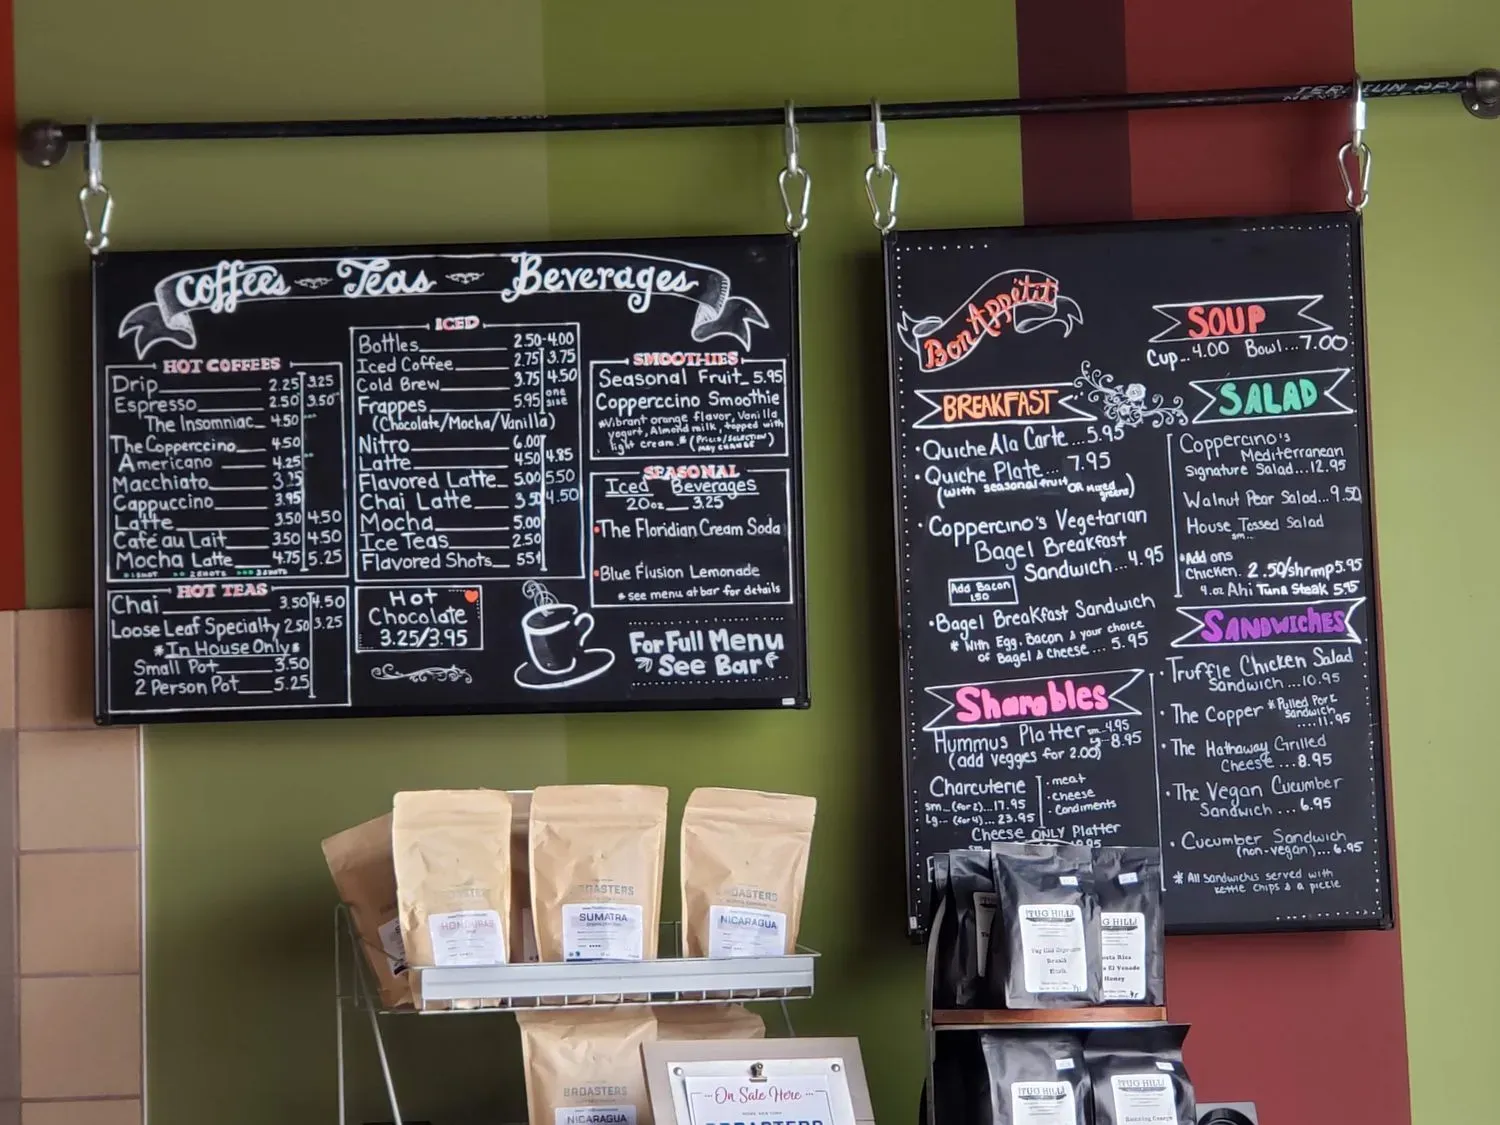 Coffees Teas Beverages
HOT COFFEES
Drip 2.25 3.25
Espresso 2.50 3.50
The Insomniac 4.50
The Coperccino 4.50
Americano 4.25
Macchiato
Cappuccino 3.95
Latte 3.50 4.50
Café au Lait 3.50 4.50
Mocha Latte 4.75 5.25
1 SHOT 2 SHOTS 3 SHOTS
HOT TEAS
Chai 3.50 4.50
Loose Leaf Specialty 2.50 3.25
*In House Only*
Small Pot 3.50
2 Person Pot 5.25
ICED
Bottles 2.50-4.00
Iced Coffee 2.75 3.75
Cold Brew 3.75 4.50
Frappes 5.95 one size
(Chocolate/Mocha/Vanilla)
Nitro 6.00
Latte 4.50 4.85
Flavored Latte 5.00 5.50
Chai Latte 3.50 4.50
Mocha 5.00
Ice Teas 2.50
Flavored Shots 55¢
Hot
Chocolate
3.25/3.95
SMOOTHIES
Seasonal Fruit 5.95
Copperccino Smoothie
*Vibrant orange flavor, Vanilla
yogurt, Almond milk, topped with
light cream.* (Prices/Selection
may change)
SEASONAL
Iced Beverages
20oz 3.25
The Floridian Cream Soda
Blue Flusion Lemonade
*see menu at bar for details
For Full Menu
See Bar
Bon Appétit
BREAKFAST
Quiche Ala Carte...5.95
Quiche Plate... 7.95
(with seasonal fruit OR mixed greens)
Coppercino's Vegetarian
Bagel Breakfast
Sandwich... 4.95
Add Bacon
1.50
Bagel Breakfast Sandwich
*With Egg, Bacon & your choice
of Bagel & Cheese... 5.95
Sharables
Hummus Platter sm 4.95
Lg 8.95
(add veggies for 2.00)
Charcuterie
sm...(for 2)...17.95
Lg...(for 4)...23.95
meat
cheese
Condiments
Cheese ONLY Platter
SOUP
Cup...4.00 Bowl...7.00
SALAD
Coppercino's
Mediterranean
Signature Salad...12.95
Walnut Pear Salad...9.50
House Tossed Salad
sm...
*Add ons
Chicken. 2.50/shrimp 5.95
4.oz Ahi Tuna Steak 5.95
SANDWICHES
Truffle Chicken Salad
Sandwich ...10.95
The Copper *Pulled Pork
Sandwich
....11.95
The Hathaway Grilled
Cheese...8.95
The Vegan Cucumber
Sandwich .... 6.95
Cucumber Sandwich
(non-vegan)... 6.95
*All Sandwichs served with
kettle chips & a pickle
HONDURAS
ROASTERS
SUMATRA
ROASTERS
NICARAGUA
TUG HILL
TUG HILL
Costa Rica
El Venado
Honey
ROASTERS
NICARAGUA
On Sale Here
ROASTERS
TUG HILL
TUG HILL